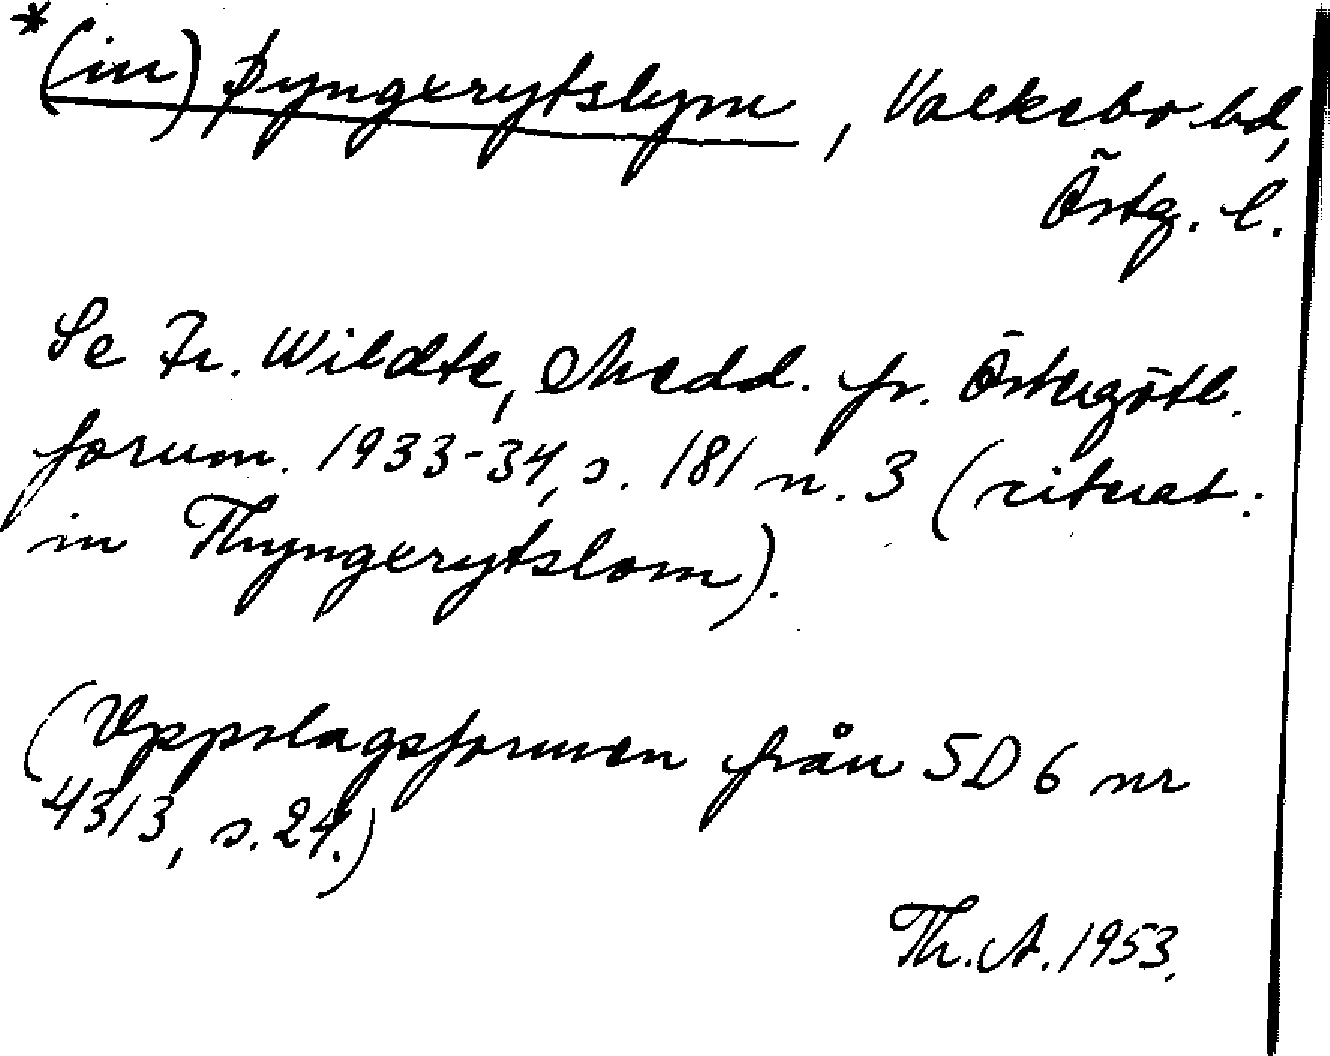 *(in) Þyngerytslym, Valkebo hd,
Östg. l.
Se Fr. Wildte, Medd. fr. Östergötl.
fornm. 1933-34, s. 181 n. 3 (citerat:
in Thyngerytslom).
(Uppslagsformen från SD 6 nr
4313, s. 24.)
Th. A. 1953.